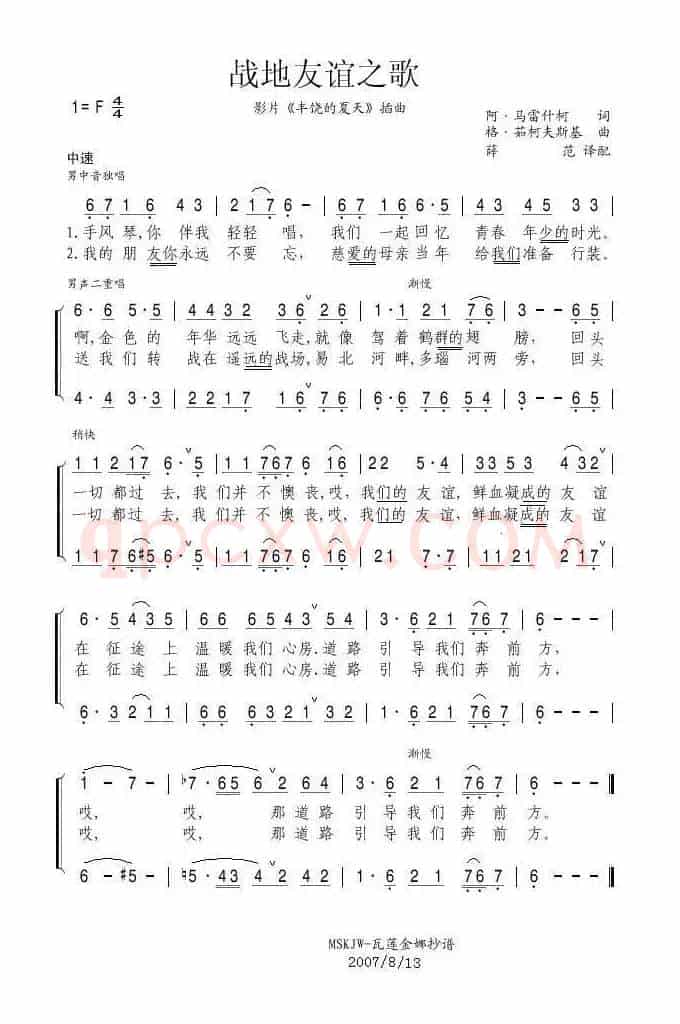 战地友谊之歌
1=F 4/4
影片《丰饶的夏天》插曲
阿·马雷什柯 词
格·茹柯夫斯基 曲
薛 范 译配
中速
男中音独唱
6 7 1 6 4 3 | 2 1 7 6 - | 6 7 1 6 6·5 | 4 3 2 1 7 6 |
1.手风琴,你伴我轻轻唱, 我们一起回忆青春年少的时光。
2.我的朋友你永远不要忘, 慈爱的母亲当年给我们准备行装。
男声二重唱
渐慢
6·6 5·5 | 4 4 3 2 3 6 2 6 | 1·1 2 1 7 6 | 3 - - 6 5 |
啊,金色的年华远远飞走,就像驾着鹤群的翅膀, 回头
送我们转战在遥远的战场,易北河畔,多瑙河两旁, 回头
4·4 3·3 | 2 2 1 7 1 6 7 6 | 6·6 7 6 5 4 | 3 - - 6 5 |
稍快
1 1 2 1 7 6·5 | 1 1 7 6 7 6 1 6 | 2 2 5·4 | 3 3 2 3 4 3 2 |
一切都过去,我们并不懊丧,哎,我们的友谊,鲜血凝成的友谊
一切都过去,我们并不懊丧,哎,我们的友谊,鲜血凝成的友谊
1 1 7 6 #5 6·5 | 1 1 7 6 7 6 1 6 | 2 1 7·7 | 1 1 2 1 2 1 7 |
6·5 4 3 5 | 6·6 5 4 4 3 5 4 | 3·6 2 1 7 6 7 | 6 - - |
在征途上温暖我们心房.道路引导我们奔前方,
在征途上温暖我们心房.道路引导我们奔前方,
6·3 2 1 1 | 6·6 6 6 2 3 2 | 1·6 2 1 7 6 7 | 6 - - |
渐慢
1 - 7 - | b7·6 5 6 2 6 4 | 3·6 2 1 7 6 7 | 6 - - ‖
哎, 哎, 那道路引导我们奔前方。
哎, 哎, 那道路引导我们奔前方。
6 - #5 - | 5·6 5 6 2 6 4 | 3·6 2 1 7 6 7 | 6 - - ‖
MSKJW-瓦莲金娜抄谱
2007/8/13
qpcxw.com